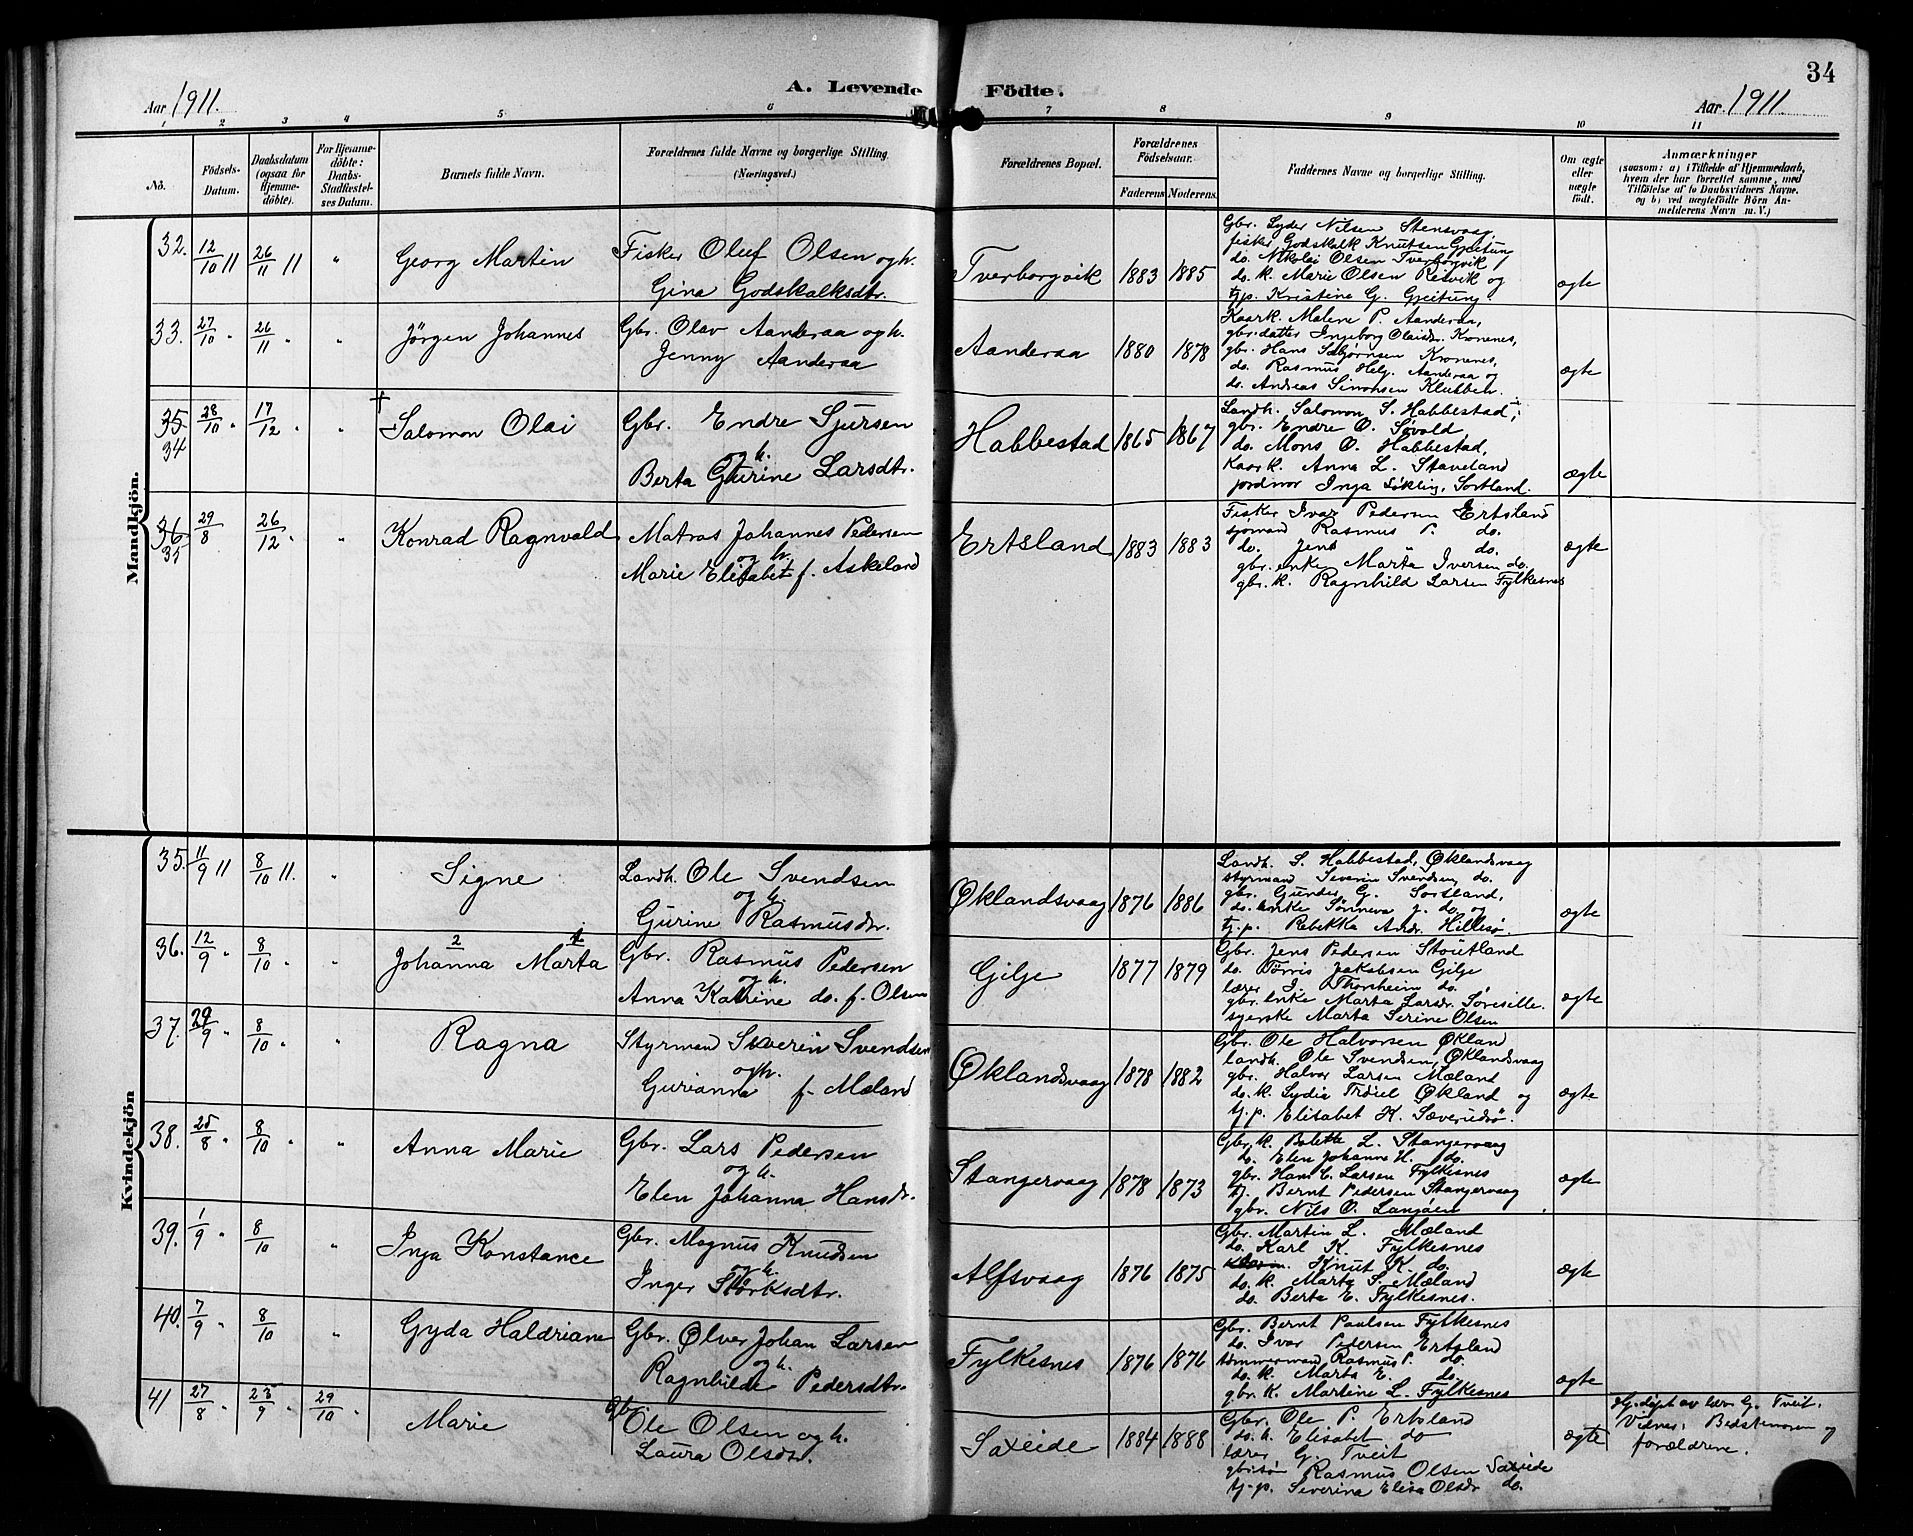 34
A. Levende Födte.
Aar 1911.
Aar 1911
1 2 3 4 5 6 7 8 9 10 11
No.
Födsels-
Datum.
Daabsdatum
(ogsaa for
Hjemme-
döbte).
For Hjemme-
döbte:
Daabs-
Stadfæstel-
ses Datum.
Barnets fulde Navn.
Forældrenes fulde Navne og borgerlige Stilling.
(Næringsvei.)
Forældrenes Bopæl.
Forældrenes
Födselsaar.
Faderens Moderens.
Faddernes Navne og borgerlige Stilling.
Om ægte
eller
uægte
født.
Anmærkninger
(saasom: a) i Tilfælde af Hjemmedaab,
hvem der har forrettet samme, med
Tilföielse af to Daabsvidners Navne.
og b) ved uægtefödte Börn An-
melderens Navn m. V.)
Mandkjön.
32. 12/10 11 26/11 11 " Georg Martin
Fisker Oluf Olsen og h.
Gina Godskalksdtr.
Tverborgvik 1883 1885
Gbr. Lyder Nilsen Stensvaag,
fisker Godskalk Knutsen Greitung
do. Nikolai Olsen Tverborgvik
do. k. Marie Olsen Reivik og
tj.p. Kristine G. Greitung
ægte
33. 27/10 " 26/11 " " Jörgen Johannes
Gbr. Olav Aanderaa og h.
Jenny Aanderaa
Aanderaa 1880 1878
Kaark. Malene P. Aanderaa,
gbr. datter Ingeborg Olaisdr. Kronenes,
gbr. Hans Asbjørnsen Kronenes,
do. Rasmus Helg. Aanderaa og
do. Andreas Simonsen Klubben.
ægte
35 34 28/10 " 17/12 " " † Salomon Olai
Gbr. Endre Sjursen
og h.
Berta Gurine Larsdtr.
Habbestad 1865 1867
Landh. Salomon S. Habbestad,
gbr. Endre O. Søvold
do. Mons O. Habbestad,
Kaark. Anna L. Staveland
jordmor Inga Løkling, Sortland.
ægte
36 35 29/8 26/12 " " Konrad Ragnvald
Matros Johannes Pedersen
og h.
Marie Elisabet f. Askeland
Ertsland 1883 1883
Fisker Ivar Pedersen Ertsland
sjømand Rasmus P. do.
do. Jens do.
gbr. enke Marta Iversen do.
gbr. k. Ragnhild Larsen Fylkesnes
ægte
Kvindekjön
35. 11/9 11 8/10 11. " Signe
Landh. Ole Svendsen
og h.
Gurine Rasmusdr.
Øklandsvaag 1876 1886
Landh. S. Habbestad, Øklandsvaag
styrmand Severin Svendsen do.
gbr. Gunder G. Sortland,
do. enke Sønneva J. do. og
tj.p. Rebekka Andr. Hillesø.
ægte
36. 12/9 " 8/10 " " Johanna 2 Marta 1
Gbr. Rasmus Pedersen
og h.
Anna Katrine do. f. Olsen
Gilje 1877 1879
Gbr. Jens Pedersen Stoutland
do. Tørris Jakobsen Gilje
lærer J. Thorsheim do.
gbr. enke Marta Larsdr. Søresille.
syerske Marta Serine Olsen
ægte
37. 29/9 " 8/10 " " Ragna
Styrmand Severin Svendsen
og h.
Gurianna f. Mæland
Øklandsvaag 1878 1882
Gbr. Ole Halvorsen Økland
landh. Ole Svendsen, Øklandsvaag
gbr. Halvor Larsen Mæland
do. k. Lydia Økland og
tj.p. Elisabet K. Sæverudsø.
ægte
38. 25/8 " 8/10 " " Anna Marie
Gbr. Lars Pedersen
og h.
Elen Johanna Hansdr.
Stangervaag 1878 1873
Gbr. k. Bolette L. Stangervaag
do. Elen Johanne H. do.
gbr. Hans E. Larsen Fylkesnes
tj. Bernt Pedersen Stangervaag
gbr. Nils O. Langøen
ægte
39. 1/9 " 8/10 " Inga Konstance
Gbr. Magnus Knudsen
og h.
Inger Størksdtr.
Alfsvaag 1876 1875
Gbr. Martin L. Mæland
do. Karl K. Fylkesnes
Knut K. do.
do. k. Marta S. Mæland
do. Berta E. Fylkesnes.
ægte
40. 7/9 " 8/10 " Gyda Haldriane
Gbr. Ølver Johan Larsen
og h.
Ragnhilde Pedersdtr.
Fylkesnes 1876 1876
Gbr. Bernt Paulsen Fylkesnes
do. Ivar Pedersen Ertsland
tømmermand Rasmus P. do.
do. k. Marta E. do.
gbr. k. Martine L. Fylkesnes
ægte
41 27/8 " 23/9 " 29/10 " Marie
Gbr.
Ole Olsen og h.
Laura Olsdtr.
Saxeide 1884 1888
Gbr. Ole P. Ertsland
do. k. Elisabet do
lærer G. Tveit
gbr. søn Rasmus Olsen Saxeide
tj.p. Severina Elisa Olsdr do.
ægte
Hj. døpt av lær. G. Tveit.
Vidner: Bedstemoren og
forældrene.